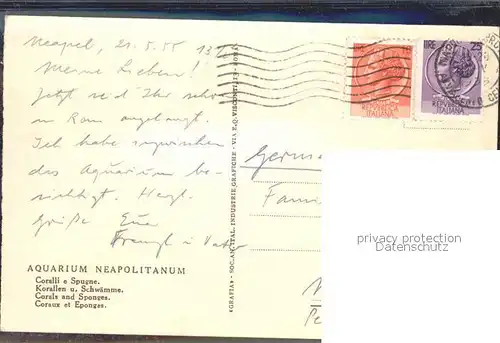 Neapel, 21.5.55 13
Meine Lieben!
Jetzt seid Ihr schon
in Rom angelangt.
Ich habe inzwischen
das Aquarium be-
sichtigt. Herzl.
Grüße Euer
Franzl u. Vater
AQUARIUM NEAPOLITANUM
Coralli e Spugne.
Korallen u. Schwämme.
Corals and Sponges.
Coraux et Eponges.
«GRAFIA» - SOC. AN. ITAL. INDUSTRIE GRAFICHE - VIA E. Q. VISCONTI - ROMA
LIRE
REPUBBLICA
ITALIANA
LIRE 25
REPUBBLICA
ITALIANA
Germ
Fami
privacy protection
Datenschutz